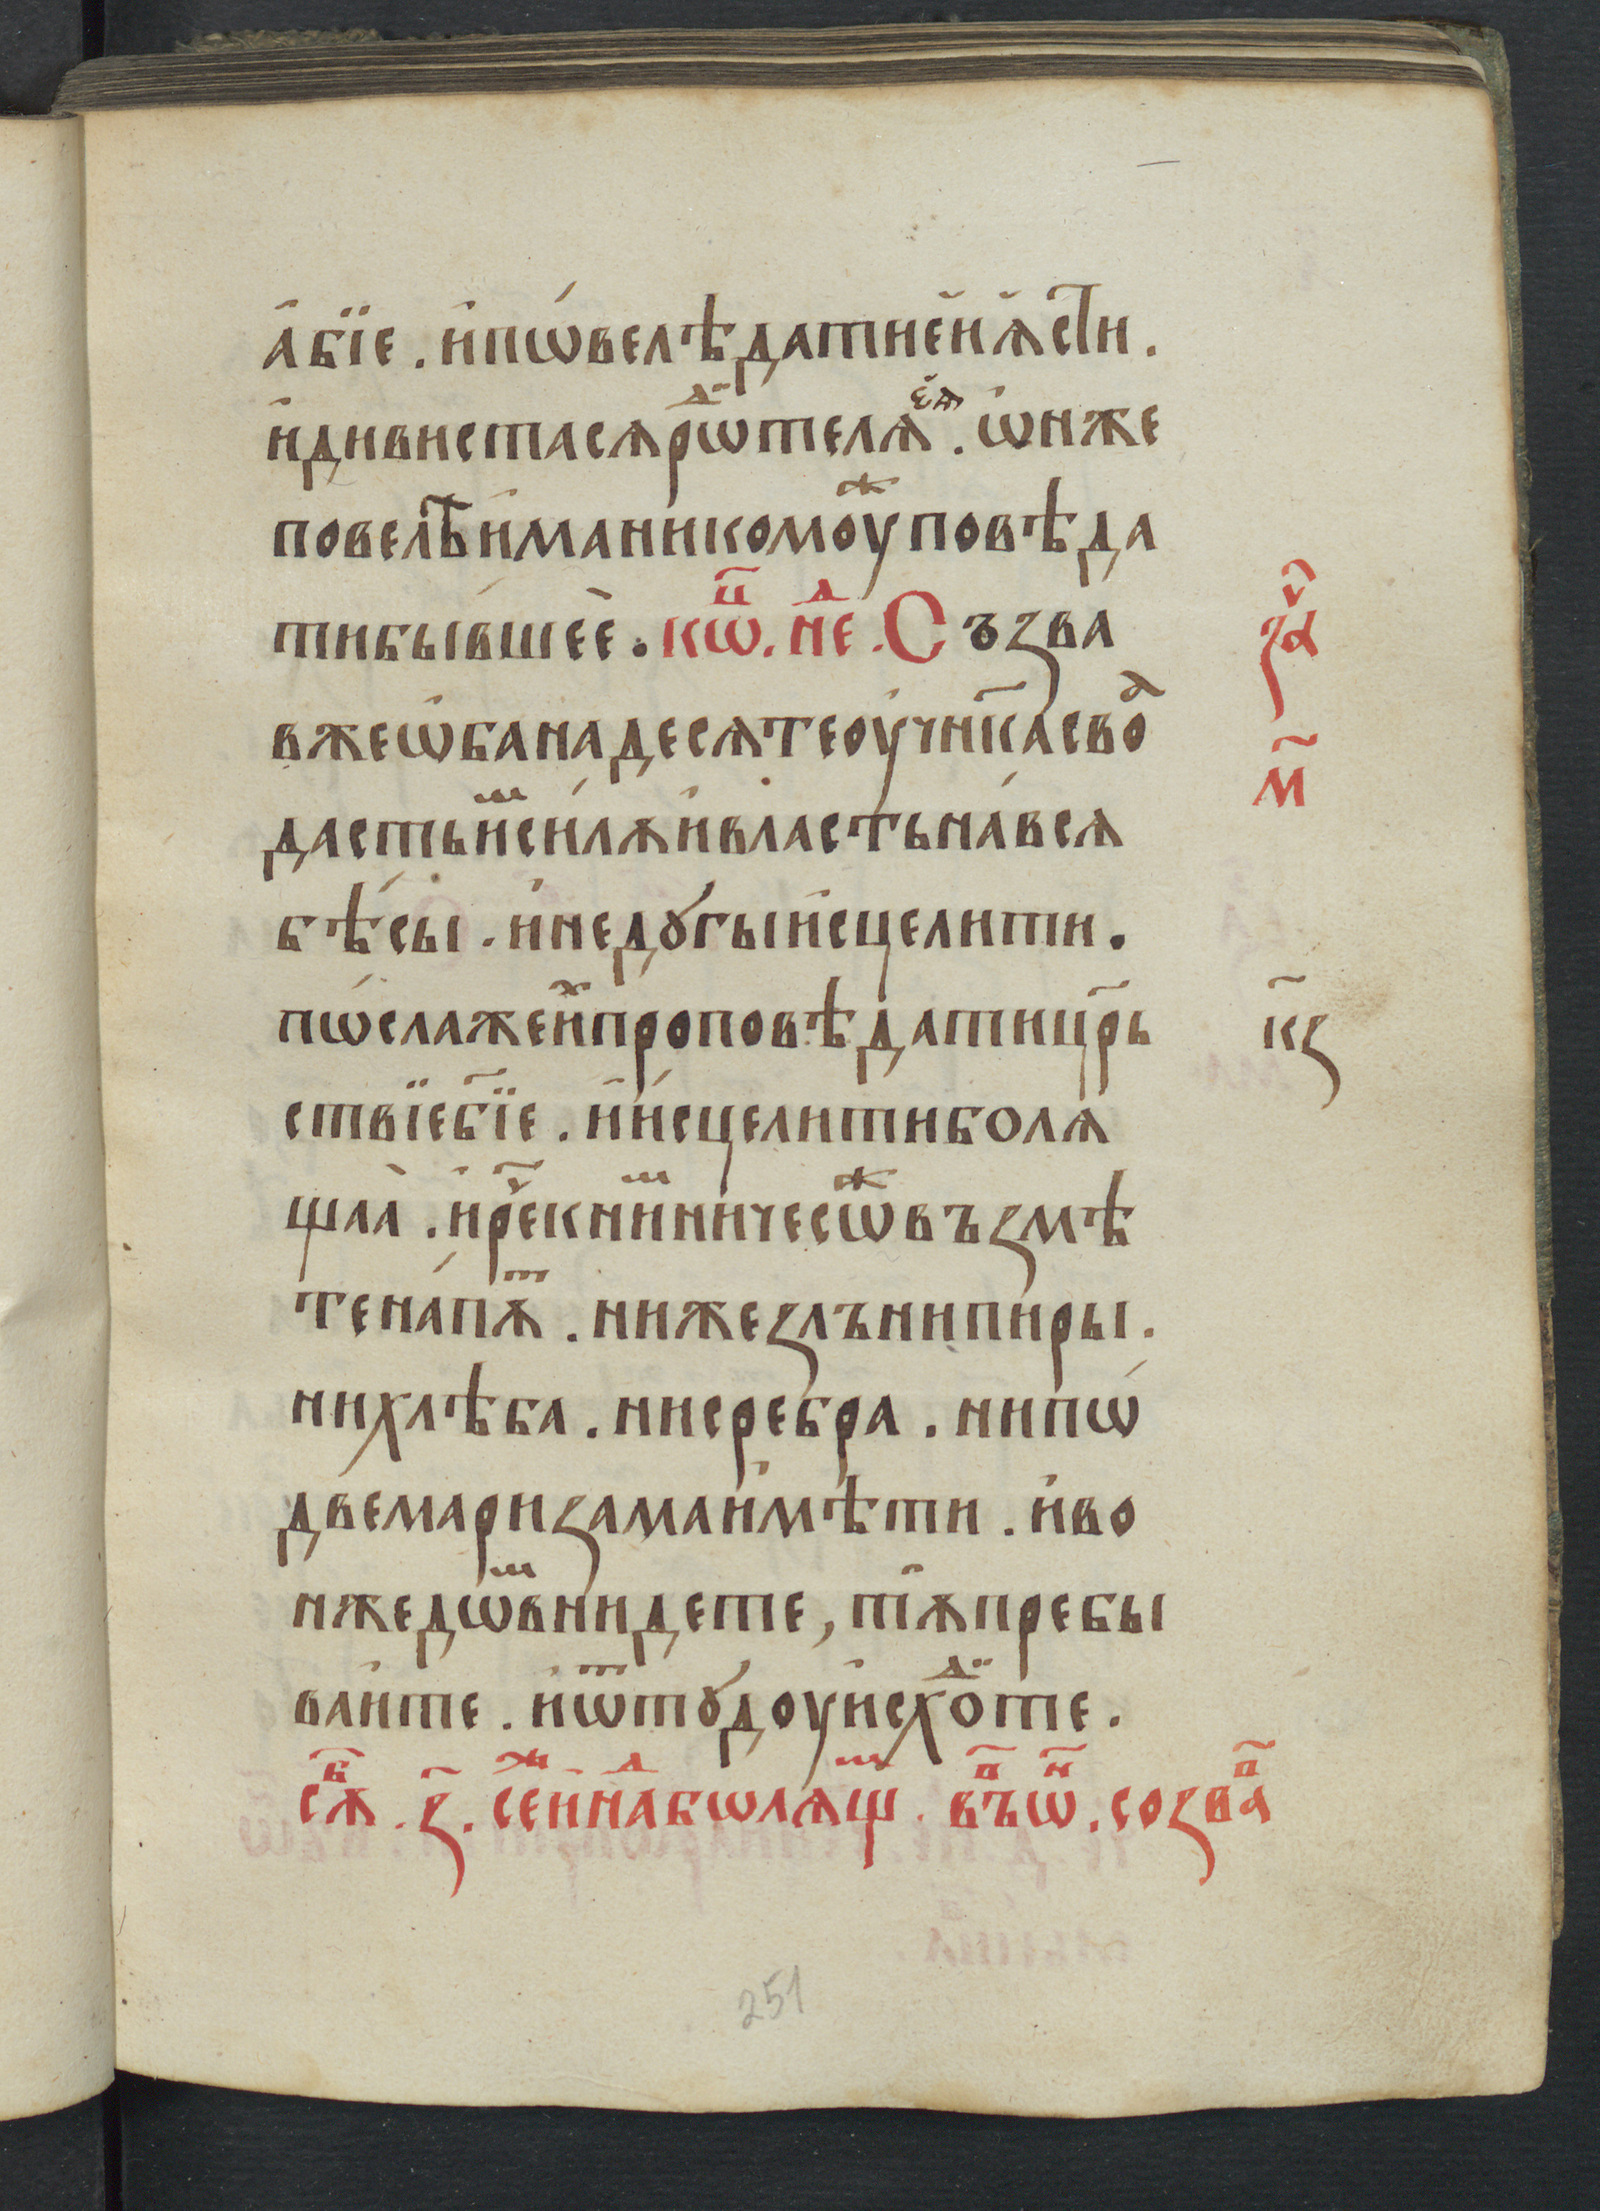 абїе . и пѡвелѣ дати ей ꙗ҆сти .
и дивистасѧ рѡⷣтелѧ еѧ . ѡнже
повелѣ има никомоуⷤ повѣда
ти бывшее . кѡⷩ҇ . неⷣ . Съзва
вже ѡбанадесѧте оучн҃ка своѧ
дасть иⷨ силѧ и власть на всѧ
бѣсы . и недꙋгы исцелити .
пѡсла же иⷯ проповѣдати цр҃ь
ствїе бж҃їе . и исцелити болѧ
щаа . и реч҇ к ниⷨ ничесѡⷤ въземѣ
те на пѧⷮ . ни жезлъ ни пиры .
ни хлѣба . ни сребра . ни пѡ
двема ризама имѣти . и во
нже дѡⷨ внидете , тꙋ пребы
ваите . и ѿтꙋдоу исхоⷣте .
сѧⷠ . з҃ . сеⷤ и наⷣ бѡлѧщⷨ . въⷫ ѡⷩ . созваⷡ
зач҇
м҃
кз
251